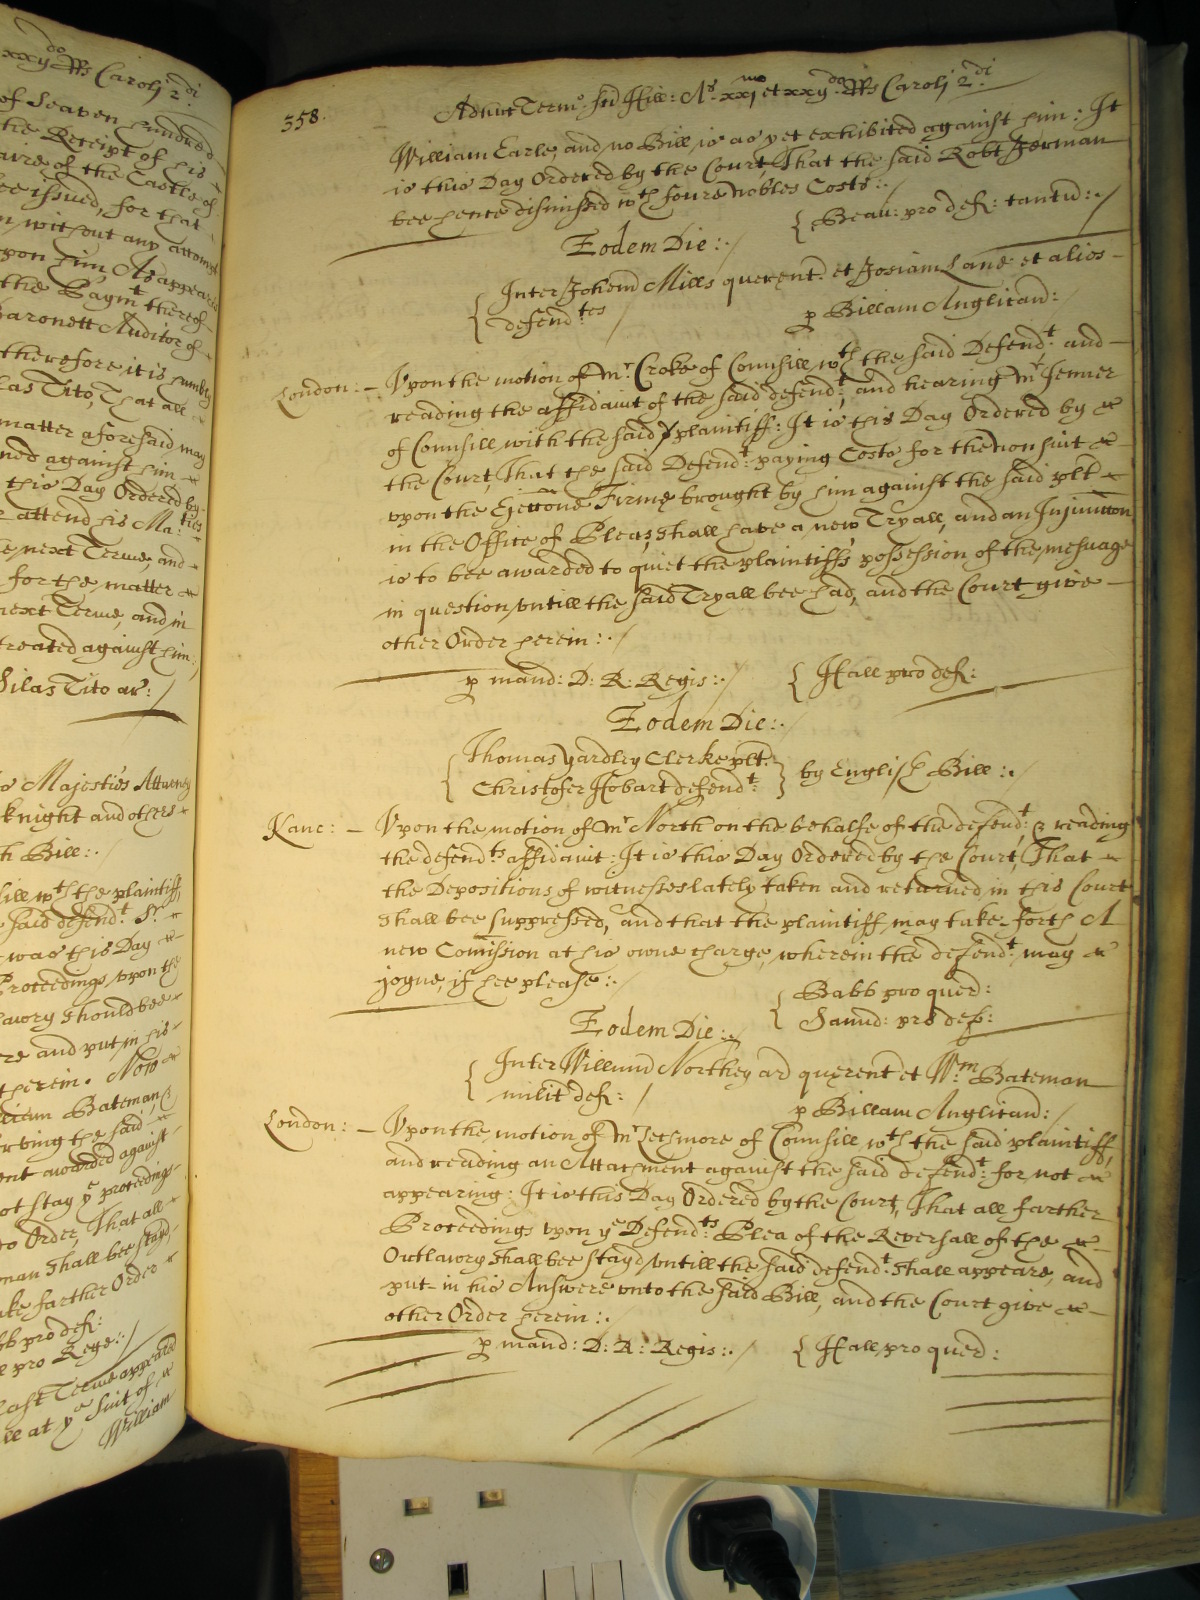 xxij Rs Caroli 2.di
of Seaven hundred
the Receipt of his
of the Castle of
bee issued, for that
without any attempt
upon him, As appeares
the Paym.t thereof
Baronett Auditor of
therefore it is humbly
Silas Tito, That all
matter aforesaid may
against him
this Day Ordered by
attend his Ma:ties
next Terme, and
for the matter
next Terme, and in
against him:
Silas Tito ar: /
Majesties Attorney
knight and others
Bill:.
w.th the plaintiff
said defend.t S.r
was this Day
Proceedings upon the
should bee
and put in his
herein. Now
William Bateman
the said
awarded against
not stay y.e proceedings
Order, That all
shall bee stayd,
farther Order
pro def:
pro Rege:. /
last Terme appeared
at y.e suit of
William
358.
Adhuc Term.o S.ti Hill: A.o xxj.mo et xxij.do Rs Caroli 2.di
William Earle, and no Bill is as yet exhibited against him: It
is this Day Ordered by the Court, That the said Robt Jerman
bee hence dismissed w.th foure nobles Costs:. /
{ Beau: pro def: tantu:. /
Eodem Die:. /
{ Inter Johem Mills querent: et Josiam Lane et alios -
defend.tes /
p Billam Anglican: /
London: - Upon the motion of M.r Croke of Counsill w.th the said Defend.t and -
reading the affidavit of the said defend.t and hearing M.r Jenner
of Counsill with the said plaintiff: It is this Day Ordered by
the Court, That the said Defend.t paying Costs for the nonsuit
upon the Ejeccone Firme brought by him against the said plt
in the Office of Pleas, shall have a new Tryall, and an Injunccon
is to bee awarded to quiet the plaintiffs possession of the mesuage
in question, untill the said Tryall bee had, and the Court give -
other Order herein:. /
p mand: D: R: Regis:. /   { Hall pro def:
Eodem Die:. /
{ Thomas Yardley Clerke plt.
Christofer Hobart defend.t } by English Bill:. /
Kanc: - Upon the motion of M.r North on the behalfe of the defend.t, & reading
the defend.ts affidavit: It is this Day Ordered by the Court, That
the Depositions of witnesses lately taken and returned in this Court
shall bee suppressed, and that the plaintiff may take forth A
new Comission at his owne charge, wherein the defend.t may
joyne, if hee please:.
{ Babb pro quer:
Saund: pro def:
Eodem Die:. /
{ Inter Willum Northey ar querent et W.m Bateman
milit def: /
p Billam Anglican: /
London: - Upon the motion of M.r Letchmore of Counsill w.th the said plaintiff,
and reading an Attachment against the said defend.t for not
appearing: It is this Day Ordered by the Court, That all farther
Proceedings upon y.e Defend.ts Plea of the Reversall of the
Outlawry shall bee stayd, untill the said defend.t shall appeare, and
put in his Answere unto the said Bill, and the Court give
other Order herein:.
p mand: D: R: Regis:. /   { Hall pro quer: